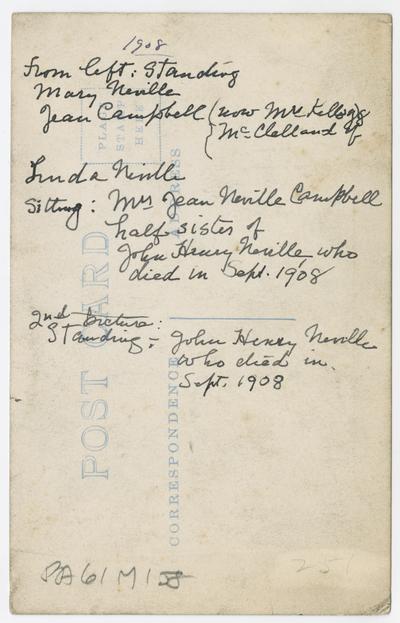 1908
From left: Standing
Mary Neville
Jean Campbell (now Mrs Kellogg
McClelland
Linda Neville
Sitting: Mrs Jean Neville Campbell
half sister of
John Henry Neville, who
died in Sept. 1908
2nd Picture:
Standing - John Henry Neville
who died in
Sept. 1908
PLACE
STAMP
HERE
ADDRESS
POST CARD
CORRESPONDENCE
PA61M158
251